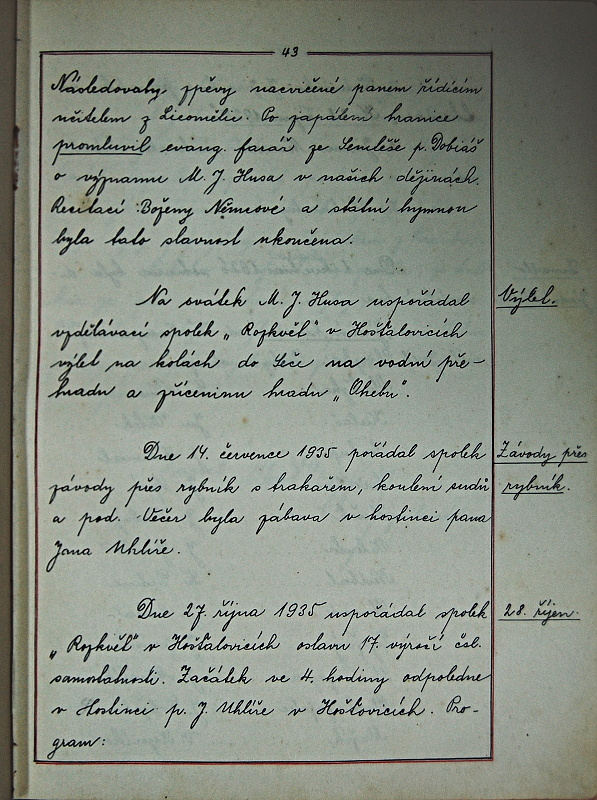 43
Následovaly zpěvy nacvičené panem řídícím
učitelem z Licoměřic. Po zapálení hranice
promluvil evang. farář ze Semtěše p. Dobiáš
o významu M. J. Husa v našich dějinách.
Recitací Boženy Němcové a státní hymnou
byla tato slavnost ukončena.
Na svátek M. J. Husa uspořádal
Výlet.
vzdělávací spolek „Rozkvět" v Hošťalovicích
výlet na kolách do Seče na vodní pře-
hradu a zříceninu hradu „Ohebu".
Dne 14. července 1935 pořádal spolek
Závody přes
závody přes rybník s trakařem, koulení sudů
rybník.
a pod. Večer byla zábava v hostinci pana
Jana Uhlíře.
Dne 27. října 1935 uspořádal spolek
28. říjen.
„Rozkvět" v Hošťalovicích oslavu 17. výročí čsl.
samostatnosti. Začátek ve 4. hodiny odpoledne
v Hostinci p. J. Uhlíře v Hošťovicích. Pro-
gram: